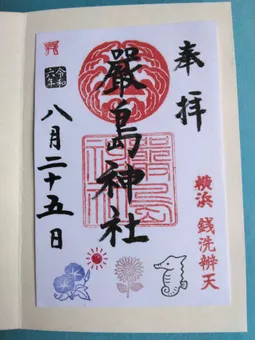 奉拝
横浜 銭洗辨天
嚴島神社
令和
六年
八月二十五日